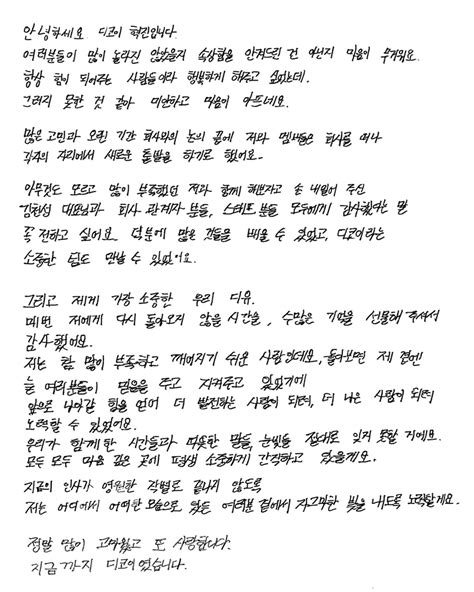 안녕하세요 디코이 혁진입니다
여러분들이 많이 놀라진 않았을지 속상함을 안겨드린 건 아닌지 마음이 무거워요.
항상 힘이 되어주는 사람들이라 행복하게 해주고 싶었는데.
그러지 못한 것 같아 미안하고 마음이 아프네요.
많은 고민과 오랜 기간 회사와의 논의 끝에 저와 멤버들은 회사를 떠나
각자의 자리에서 새로운 출발을 하기로 했어요.
아무것도 모르고 많이 부족했던 저와 함께 해보자고 손 내밀어 주신
대표님과 회사 관계자 분들, 스태프 분들 모두에게 감사했다는 말
꼭 전하고 싶어요. 덕분에 많은 것들을 배울 수 있었고, 디코이라는
소중한 팀도 만날 수 있었어요.
그리고 제게 가장 소중한 우리 디유.
매번 저에게 다시 돌아오지 않을 시간을, 수많은 기억을 선물해 주셔서
감사했어요.
저는 참 많이 부족하고 깨어지기 쉬운 사람인데요, 돌아보면 제 곁엔
늘 여러분들이 믿음을 주고 지켜주고 있었기에
앞으로 나아갈 힘을 얻어 더 발전하는 사람이 되려, 더 나은 사람이 되려
노력할 수 있었어요.
우리가 함께한 시간들과 따뜻한 말들, 눈빛들 절대로 잊지 못할 거예요.
모두 모두 마음 깊은 곳에 평생 소중하게 간직하고 있을게요.
지금의 인사가 영원한 작별로 끝나지 않도록
저는 어디에서 어떠한 모습으로 있든 여러분 곁에서 자그마한 빛을 내도록 노력할게요.
정말 많이 고마웠고 또 사랑합니다.
지금까지 디코이였습니다.